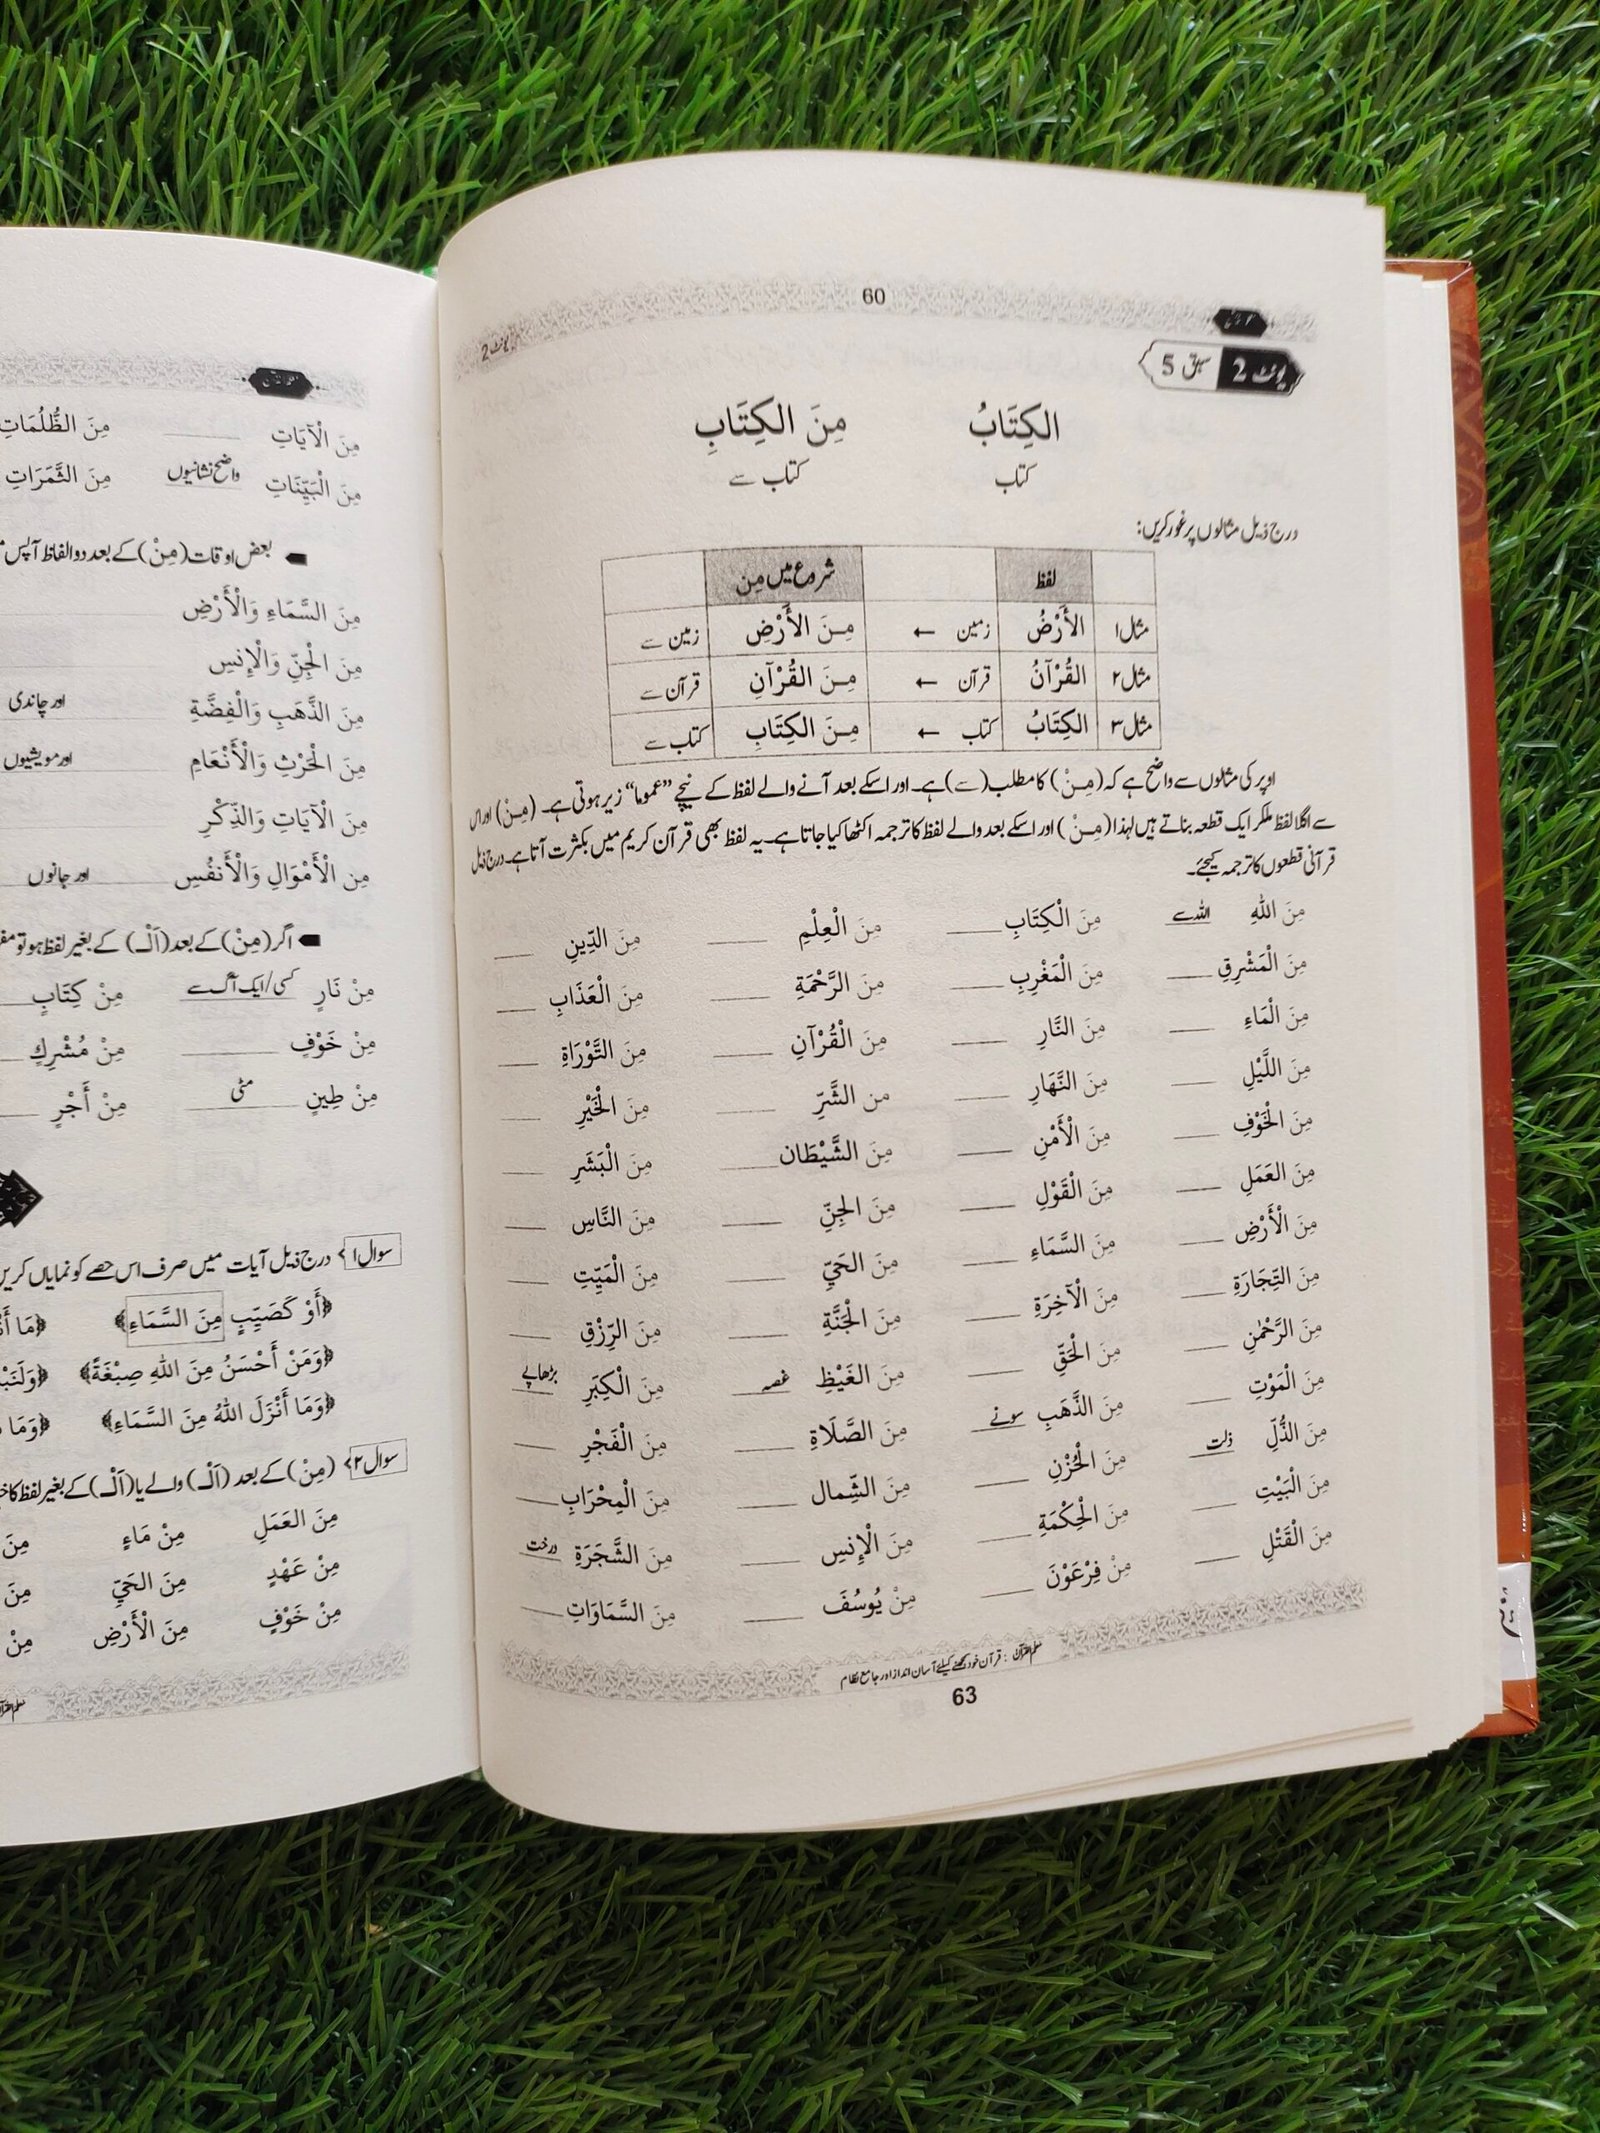 60
یونٹ 2
یونٹ 2 سبق 5
الكِتَابُ مِنَ الكِتَابِ
کتاب کتاب سے
درج ذیل مثالوں پر غور کریں:
لفظ شروع میں مِن
مثال ۱ الأَرْضُ زمین ← مِـنَ الأَرْضِ زمین سے
مثال ۲ القُرْآنُ قرآن ← مِـنَ القُرْآنِ قرآن سے
مثال ۳ الكِتَابُ کتاب ← مِـنَ الكِتَابِ کتاب سے
اوپر کی مثالوں سے واضح ہے کہ (مِـنْ) کا مطلب (سے) ہے۔ اور اسکے بعد آنے والے لفظ کے نیچے ”عموما“ زیر ہوتی ہے۔ (مِـنْ) اور اس
سے اگلا لفظ ملکر ایک قطعہ بناتے ہیں لہذا (مِـنْ) اور اسکے بعد والے لفظ کا ترجمہ اکٹھا کیا جاتا ہے۔ یہ لفظ بھی قرآن کریم میں بکثرت آتا ہے۔ درج ذیل
قرآنی قطعوں کا ترجمہ کیجئے۔
مِنَ اللهِ اللہ سے مِنَ الْكِتَابِ ____ مِنَ الْعِلْمِ ____ مِنَ الدِّينِ ____
مِنَ الْمَشْرِقِ ____ مِنَ الْمَغْرِبِ ____ مِنَ الرَّحْمَةِ ____ مِنَ الْعَذَابِ ____
مِنَ الْمَاءِ ____ مِنَ النَّارِ ____ مِنَ الْقُرْآنِ ____ مِنَ التَّوْرَاةِ ____
مِنَ اللَّيْلِ ____ مِنَ النَّهَارِ ____ من الشَّرِّ ____ مِنَ الْخَيْرِ ____
مِنَ الْخَوْفِ ____ مِنَ الْأَمْنِ ____ مِنَ الشَّيْطَان ____ مِنَ الْبَشَرِ ____
مِنَ العَمَلِ ____ مِنَ الْقَوْلِ ____ مِنَ الجِنِّ ____ مِنَ النَّاسِ ____
مِنَ الْأَرْضِ ____ مِنَ السَّمَاءِ ____ مِنَ الحَيِّ ____ مِنَ الْمَيِّتِ ____
مِنَ التِّجَارَةِ ____ مِنَ الْآخِرَةِ ____ مِنَ الْجَنَّةِ ____ مِنَ الرِّزْقِ ____
مِنَ الرَّحْمٰنِ ____ مِنَ الْحَقِّ ____ مِنَ الْغَيْظِ غصہ مِنَ الْكِبَرِ بڑھاپے
مِنَ الْمَوْتِ ____ مِنَ الذَّهَبِ سونے مِنَ الصَّلَاةِ ____ مِنَ الْفَجْرِ ____
مِنَ الذُّلِّ ذلت مِنَ الْحُزْنِ ____ مِنَ الشِّمال ____ مِنَ الْمِحْرَابِ ____
مِنَ الْبَيْتِ ____ مِنَ الْحِكْمَةِ ____ مِنَ الْإِنسِ ____ مِنَ الشَّجَرَةِ درخت
مِنَ الْقَتْلِ ____ مِنْ فِرْعَوْنَ ____ مِنْ يُوسُفَ ____ مِنَ السَّمَاوَاتِ ____
معلم القرآن : قرآن خود سمجھنے کیلئے آسان انداز اور جامع نظام
63
مِنَ الْآيَاتِ ____ مِنَ الظُّلُمَاتِ
مِنَ الْبَيِّنَاتِ واضح نشانیوں مِنَ الثَّمَرَاتِ
بعض اوقات (مِنْ) کے بعد دو الفاظ آپس
مِنَ السَّمَاءِ وَالْأَرْضِ
مِنَ الْجِنِّ وَالْإِنسِ
مِنَ الذَّهَبِ وَالْفِضَّةِ اور چاندی
مِنَ الْحَرْثِ وَالْأَنْعَامِ اور مویشیوں
مِنَ الْآيَاتِ وَالذِّكْرِ
مِن الْأَمْوَالِ وَالْأَنفُسِ اور جانوں
اگر (مِنْ) کے بعد (اَلْـ) کے بغیر لفظ ہو تو
مِنْ نَارٍ کسی/ایک آگ سے مِنْ كِتَابٍ
مِنْ خَوْفٍ ____ مِنْ مُشْرِكٍ
مِنْ طِينٍ مٹی مِنْ أَجْرٍ
سوال ۱ درج ذیل آیات میں صرف اس حصے کو نمایاں کریں
﴿أَوْ كَصَيِّبٍ مِنَ السَّمَاءِ﴾
﴿وَمَنْ أَحْسَنُ مِنَ اللهِ صِبْغَةً﴾
﴿وَمَا أَنْزَلَ اللهُ مِنَ السَّمَاءِ﴾ ﴿وَمَا
سوال ۲ (مِنْ) کے بعد (اَلْـ) والے یا (اَلْـ) کے بغیر لفظ کا
مِنَ العَمَلِ مِنْ مَاءٍ مِنَ
مِنْ عَهْدٍ مِنَ الحَيِّ مِنَ
مِنْ خَوْفٍ مِنَ الْأَرْضِ مِنْ